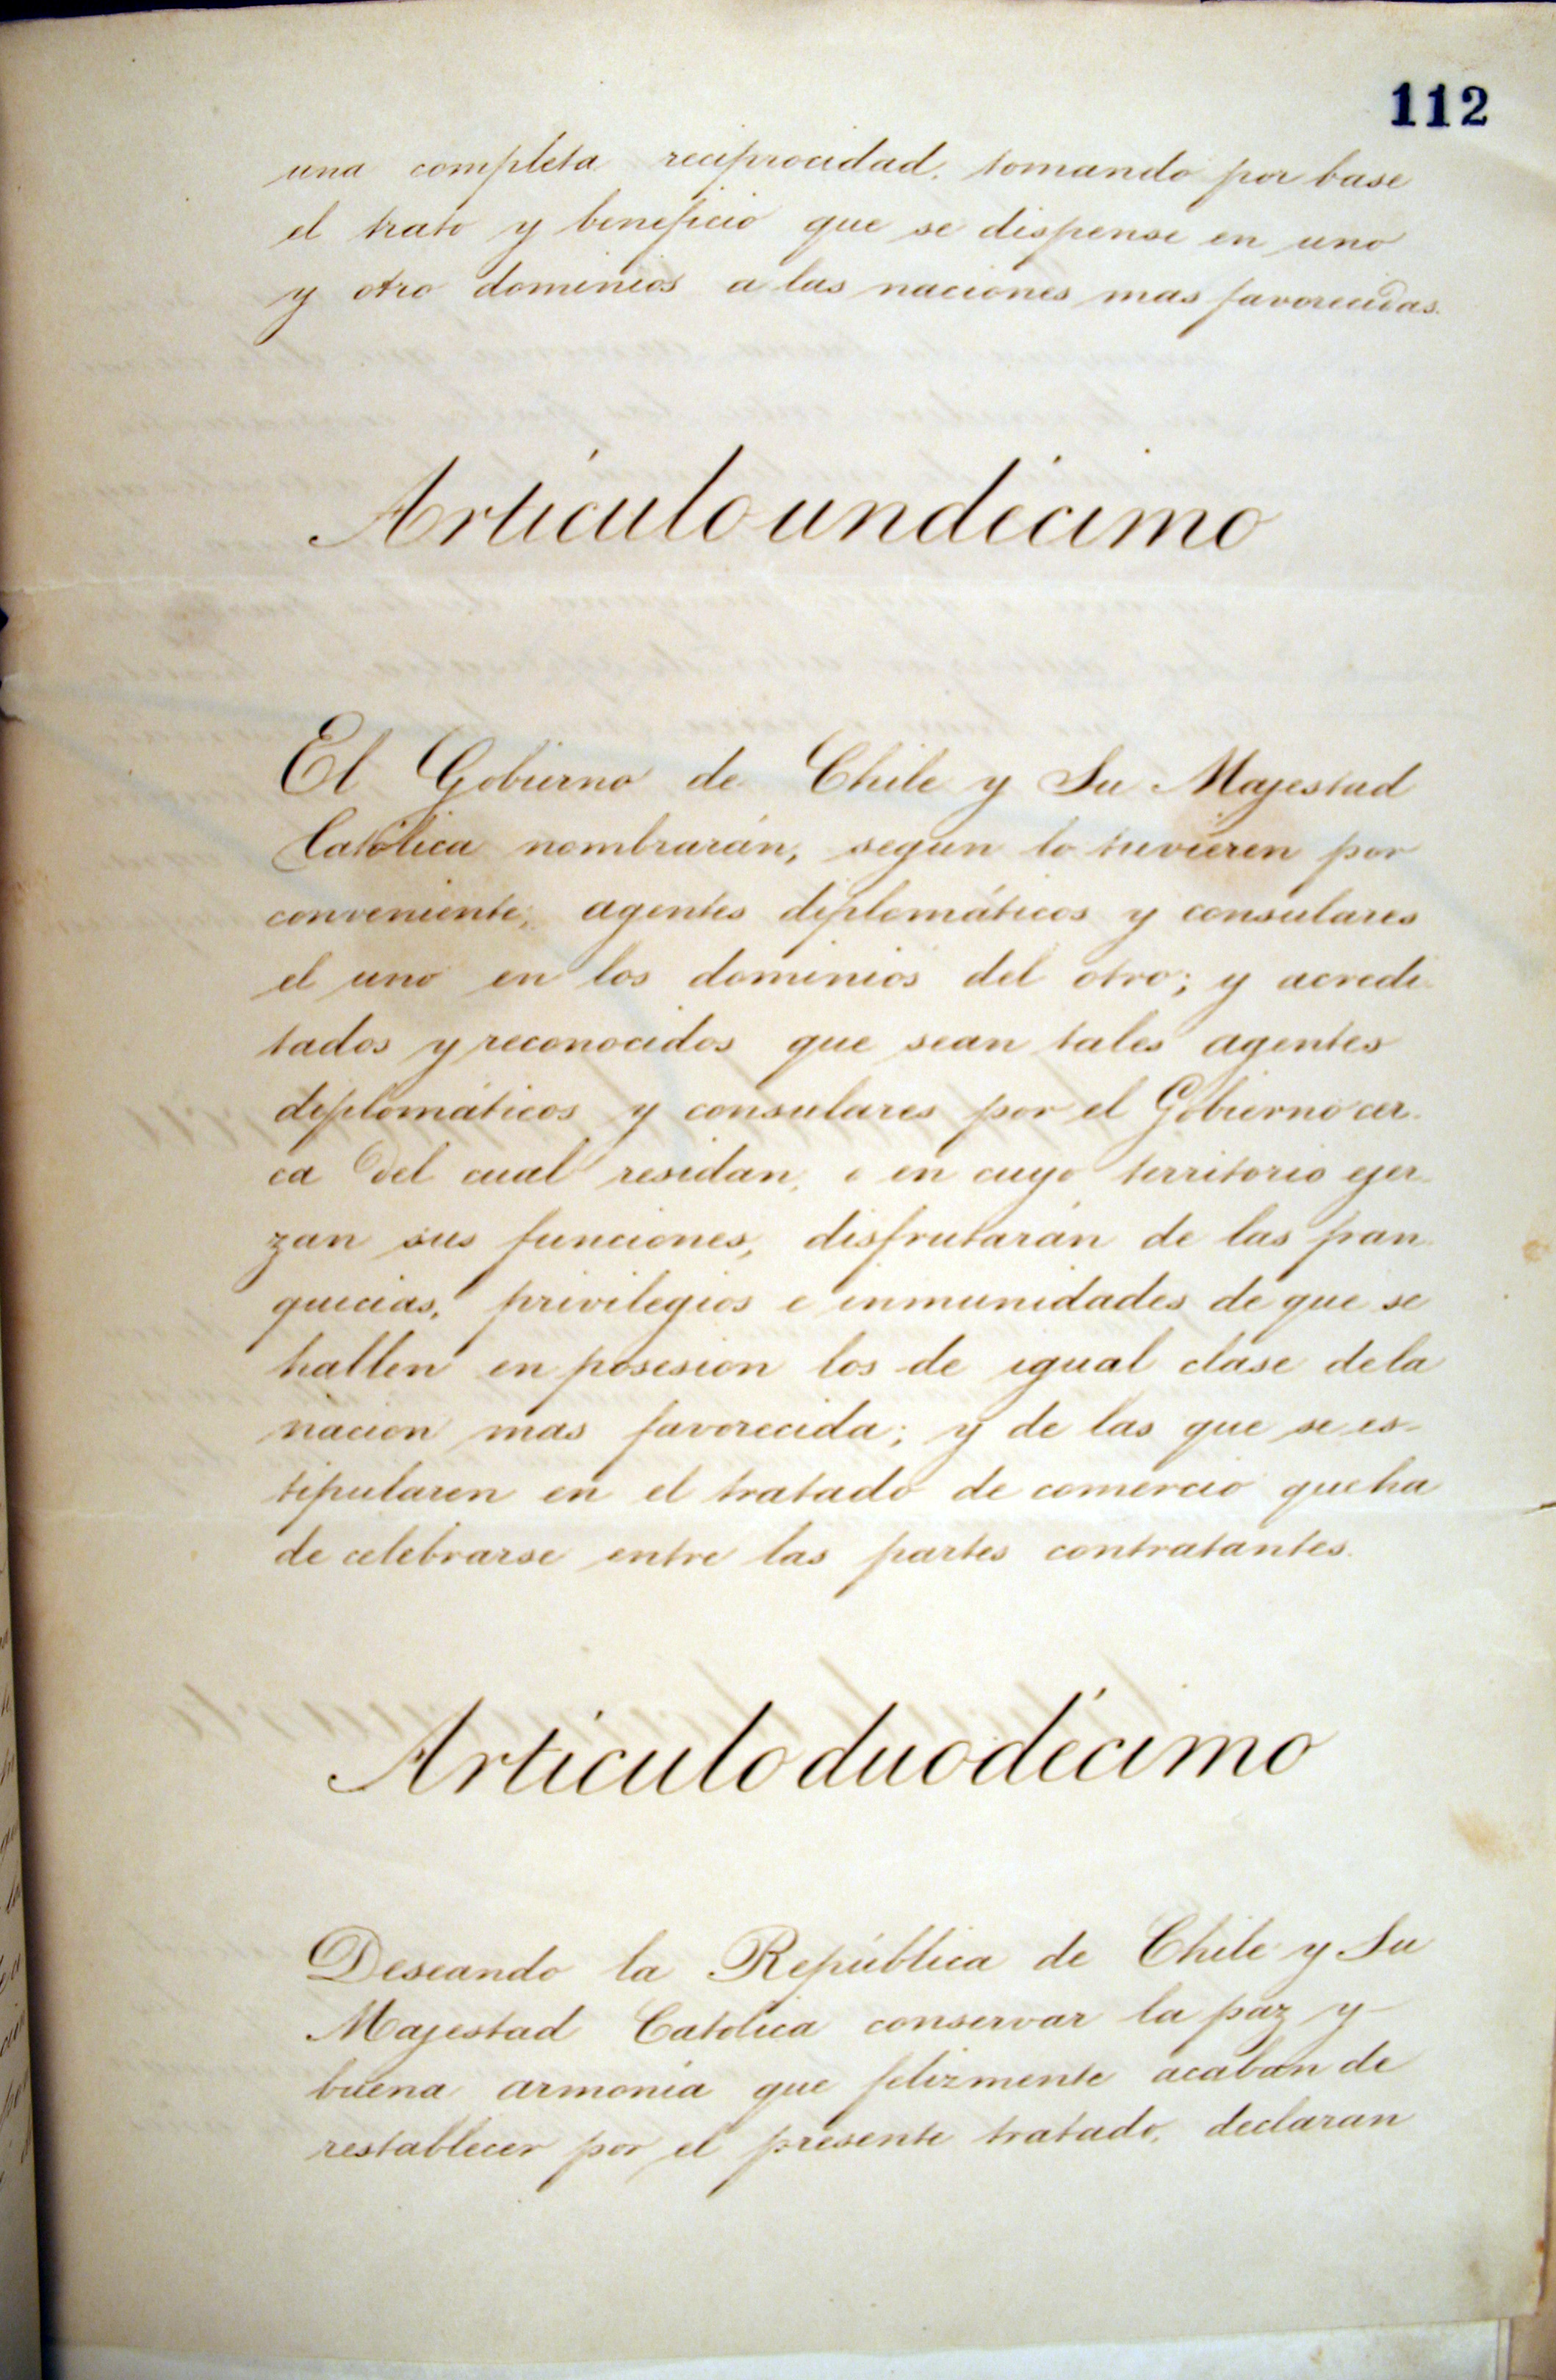 112
una completa reciprocidad, tomando por base
el trato y beneficio que se dispense en uno
y otro dominios a las naciones mas favorecidas.
Artículo undécimo
El Gobierno de Chile y Su Majestad
Católica nombrarán, segun lo tuvieren por
conveniente, agentes diplomáticos y consulares
el uno en los dominios del otro; y acredi-
tados y reconocidos que sean tales agentes
diplomáticos y consulares por el Gobierno cer-
ca del cual residan, o en cuyo territorio ejer-
zan sus funciones, disfrutarán de las fran-
quicias, privilegios e inmunidades de que se
hallen en posesion los de igual clase de la
nacion mas favorecida; y de las que se es-
tipularen en el tratado de comercio que ha
de celebrarse entre las partes contratantes.
Artículo duodécimo
Deseando la República de Chile y Su
Majestad Católica conservar la paz y
buena armonía que felizmente acaban de
restablecer por el presente tratado, declaran